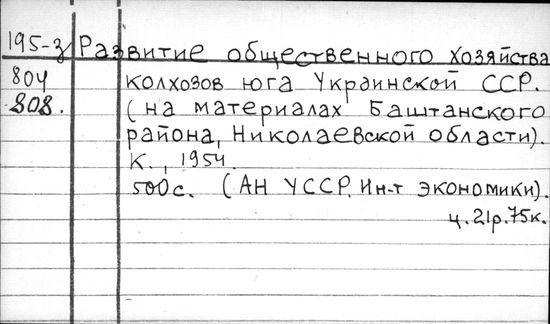 195-з Развитие общественного хозяйства
804 колхозов юга Украинской ССР.
808. (на материалах Баштанского
района, Николаевской области).
К., 1954.
500с. (АН УССР. Ин-т экономики).
ц. 21р. 75к.